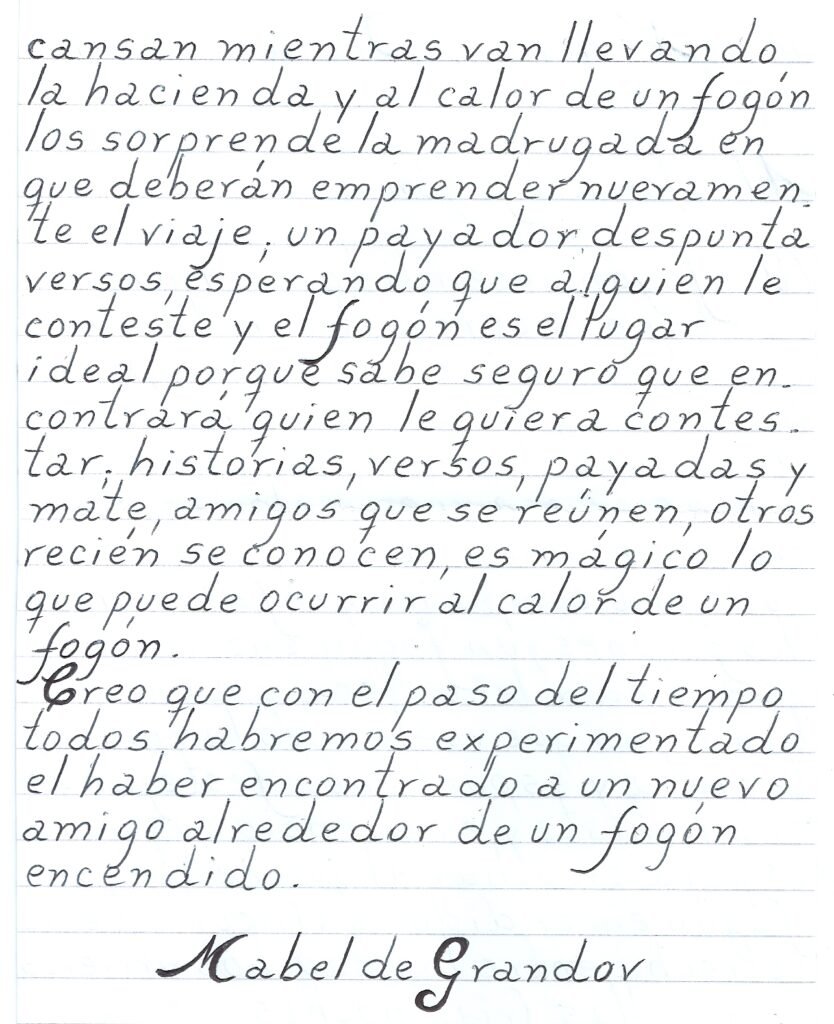 cansan mientras van llevando
la hacienda y al calor de un fogón
los sorprende la madrugada en
que deberán emprender nuevamen-
te el viaje; un payador despunta
versos, esperando que alguien le
conteste y el fogón es el lugar
ideal porque sabe seguro que en-
contrará quien le quiera contes-
tar; historias, versos, payadas y
mate, amigos que se reúnen, otros
recién se conocen, es mágico lo
que puede ocurrir al calor de un
fogón.
Creo que con el paso del tiempo
todos habremos experimentado
el haber encontrado a un nuevo
amigo alrededor de un fogón
encendido.
Mabel de Grandov